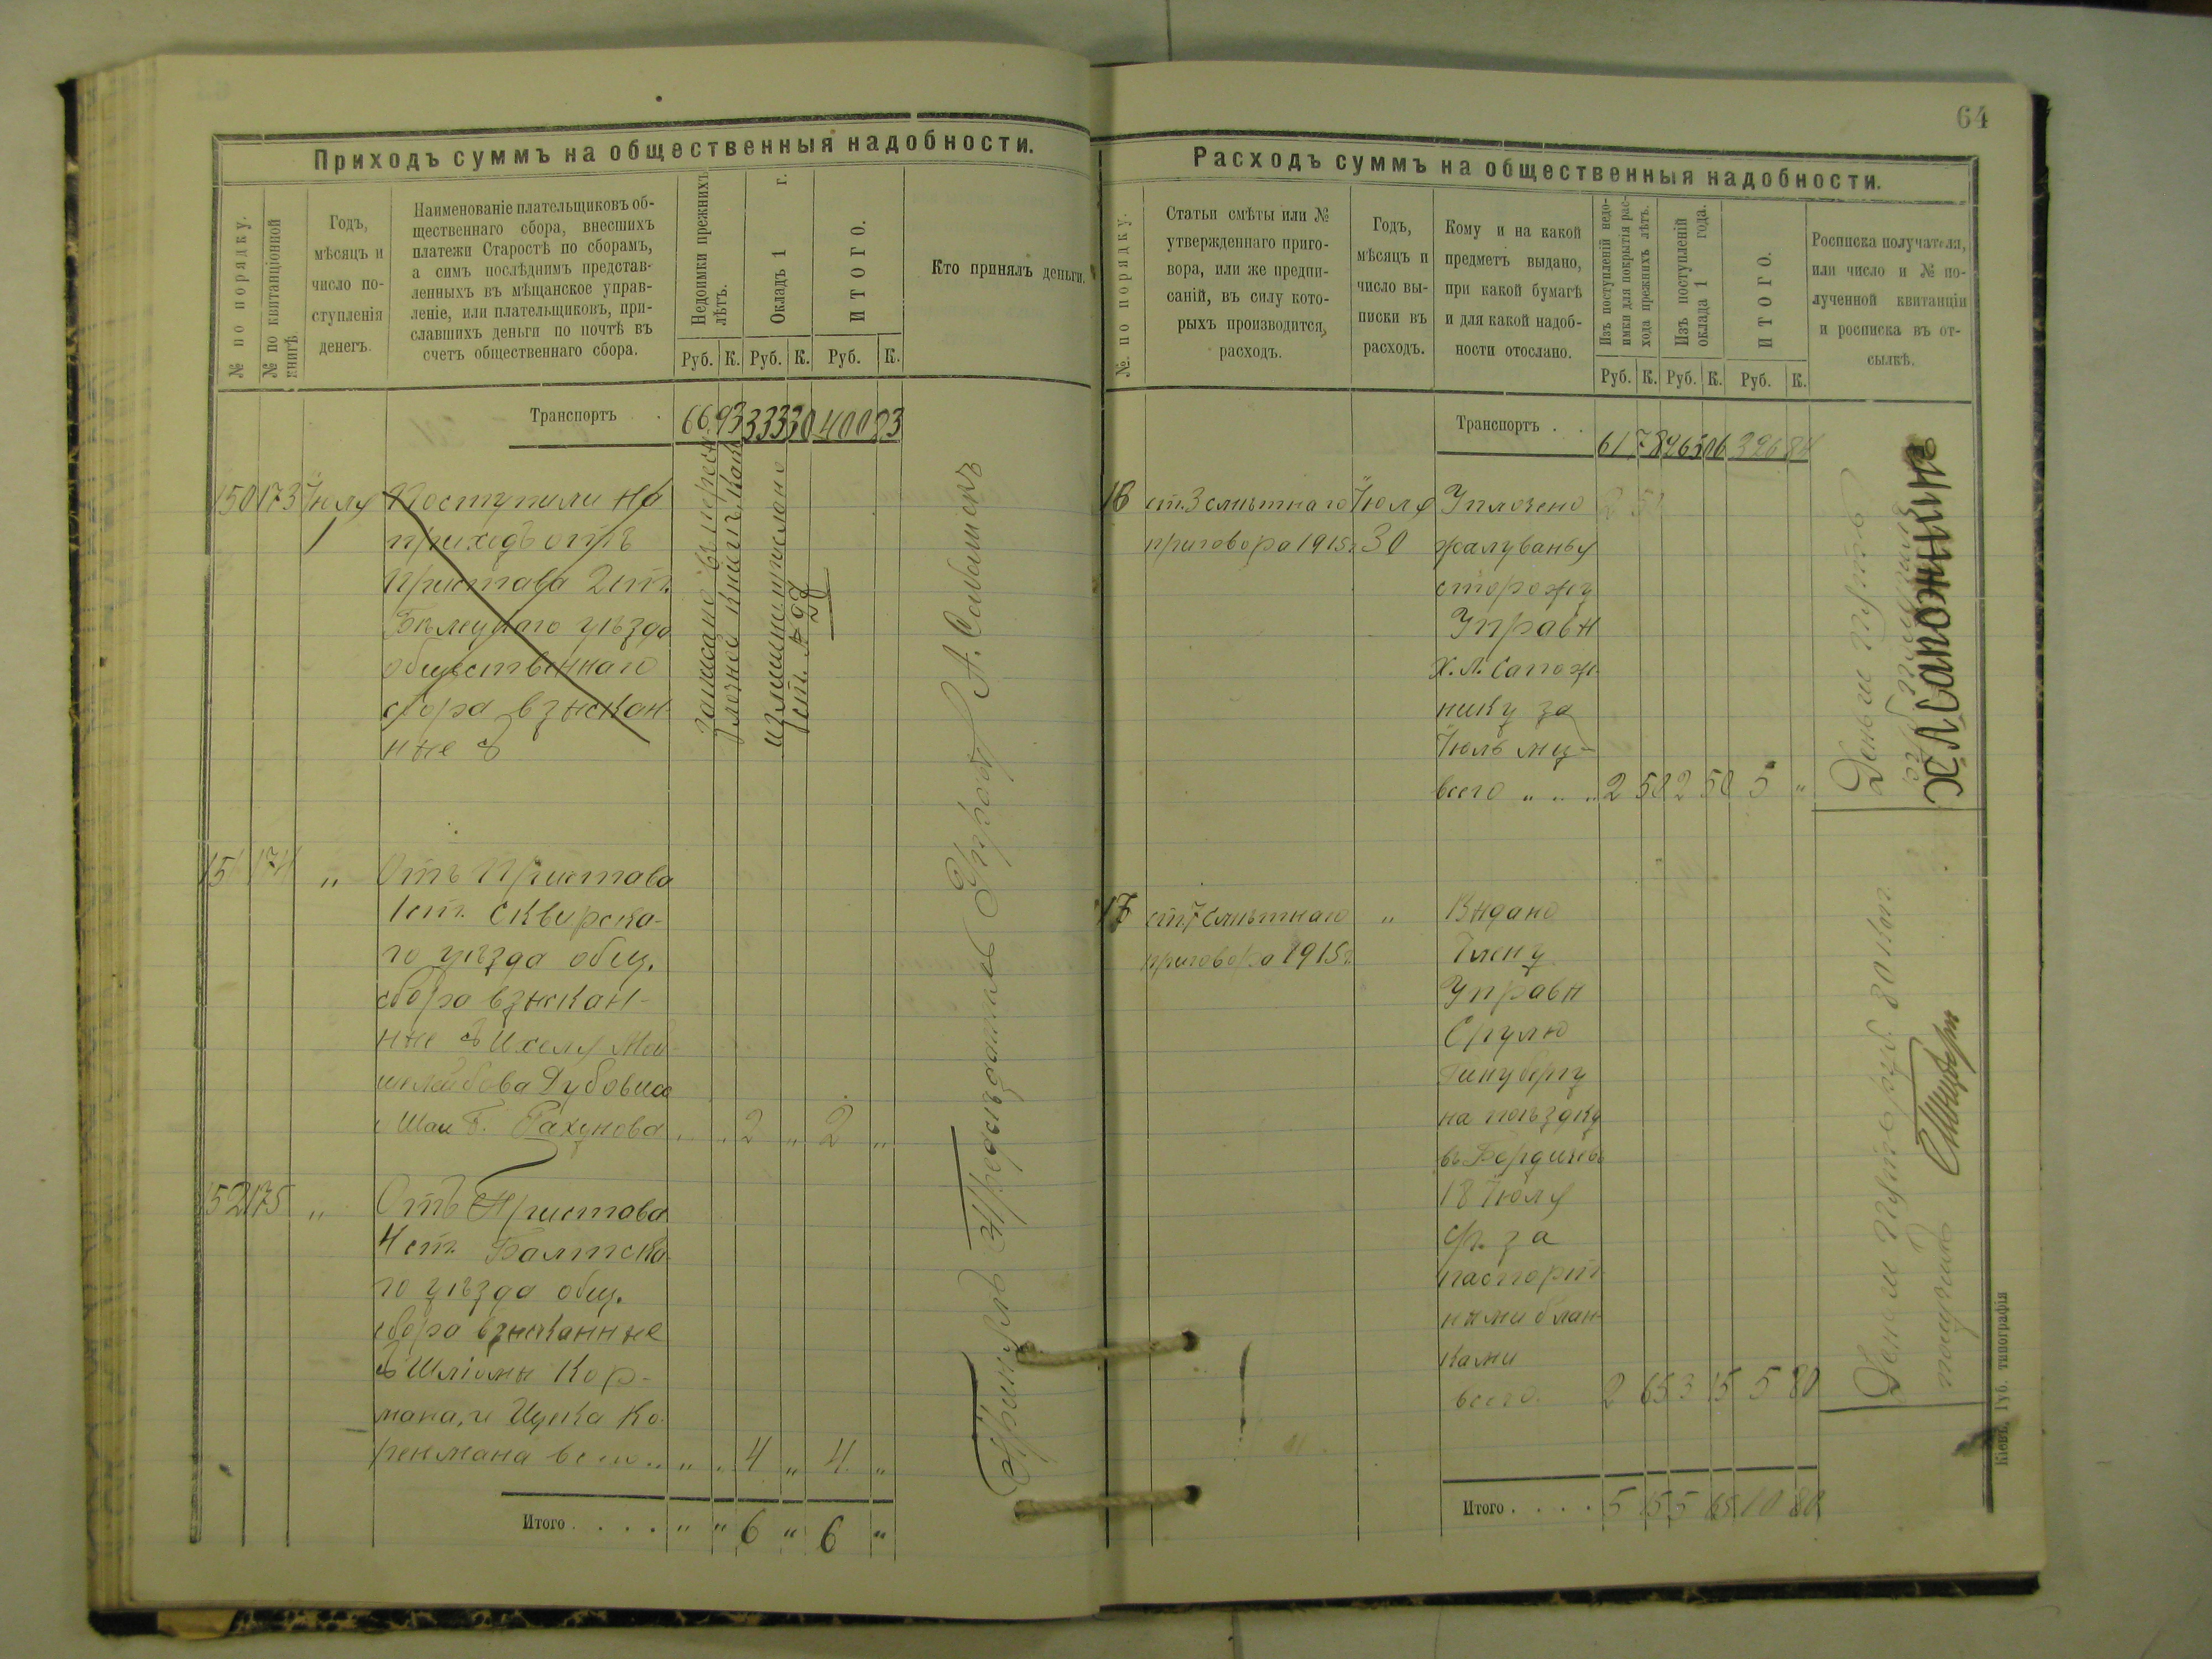 64
Приходъ суммъ на общественныя надобности.
№ по порядку.
№ по квитанціонной книгѣ.
Годъ,
мѣсяцъ и
число по-
ступленія
денегъ.
Наименованіе плательщиковъ об-
щественнаго сбора, внесшихъ
платежи Старостѣ по сборамъ,
а симъ послѣднимъ представ-
ленныхъ въ мѣщанское управ-
леніе, или плательщиковъ, при-
славшихъ деньги по почтѣ въ
счетъ общественнаго сбора.
Недоимки прежнихъ
лѣтъ.
Окладъ 1 г.
ИТОГО.
Кто принялъ деньги.
Руб. К. Руб. К. Руб. К.
Транспортъ . 66 93 333 30 400 23
150 173 Іюля Поступили на
1 приходъ отъ
Пристава 2 ст.
уѣзда
общественнаго
сбора взыскан-
ные съ
записано въ
излишне
ст. №
151 174 " Отъ Пристава
1 ст. Сквирска-
го уѣзда общ.
сбора взыскан-
ные съ Ихеля Мой-
шелейбова Дубовиса
и Шаи Б. " " 2 " 2 "
152 175 " Отъ Пристава
4 ст. Балтска-
го уѣзда общ.
сбора взысканные
съ Шліомы Кор-
мана, и Ицика Ко-
ренмана всего .. " " 4 " 4 "
Итого . . . . " " 6 " 6 "
Принялъ Предсѣдатель Управы
Расходъ суммъ на общественныя надобности.
№. по порядку.
Статьи смѣты или №
утвержденнаго приго-
вора, или же предпи-
саній, въ силу кото-
рыхъ производится,
расходъ.
Годъ,
мѣсяцъ и
число вы-
писки въ
расходъ.
Кому и на какой
предметъ выдано,
при какой бумагѣ
и для какой надоб-
ности отослано.
Изъ поступленій недо-
имки для покрытія рас-
хода прежнихъ лѣтъ.
Изъ поступленій
оклада 1 года.
ИТОГО.
Росписка получателя,
или число и № по-
лученной квитанціи
и росписка въ от-
сылкѣ.
Руб. К. Руб. К. Руб. К.
Транспортъ . . 61 78 265 06 326 84
16 ст. 3 смѣтнаго Іюля Уплочено
приговора 1915 г. 30 жалуванья
сторожу
Управы
Х. Л. Сапож-
нику за
Іюль мц-
всего " .. " 2 50 2 50 5 "
Деньги пять
руб. получилъ
Х Л Сапожникъ
17 ст. 7 смѣтнаго " Выдано
приговора 1915 г. Члену
Управы
Срулю
на поѣздку
въ Бердичевъ
18 Іюля
с/г. за
паспорт-
ными блан-
ками
всего. 2 65 3 15 5 80
Деньги пять руб. 80 коп.
получилъ
Итого . . . . 5 15 5 65 10 80
Кіевъ. Губ. типографія